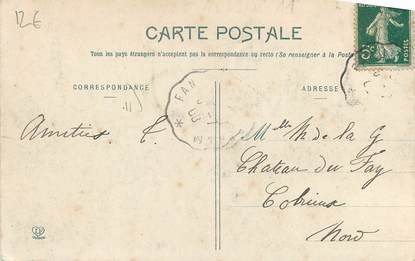 12€
CARTE POSTALE
Tous les pays étrangers n'acceptent pas la correspondance au recto (Se renseigner à la Poste)
CORRESPONDANCE
ADRESSE
Amitiés
Mlle M de la G
Chateau du Fay
Cobrieux
Nord
POSTES